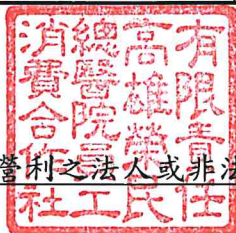 有限責任
高雄榮民
總醫院員工
消費合作社
營利之法人或非法